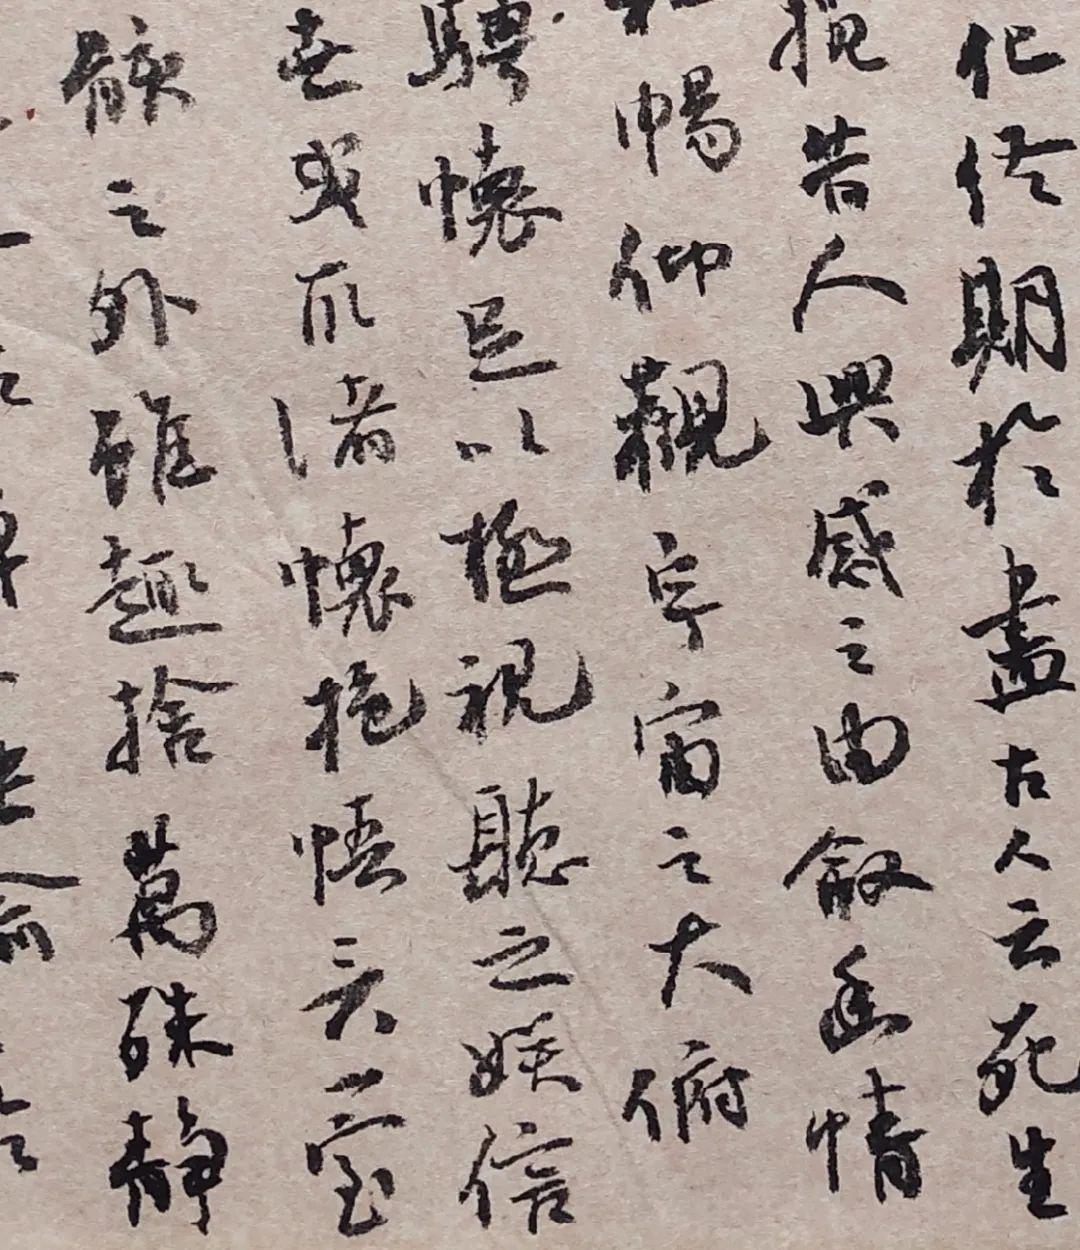 化終期於盡古人云死生
攬昔人興感之由敘幽情
暢仰觀宇宙之大俯
騁懷足以極視聽之娛信
世或取諸懷抱悟言一室
骸之外雖趣捨萬殊靜